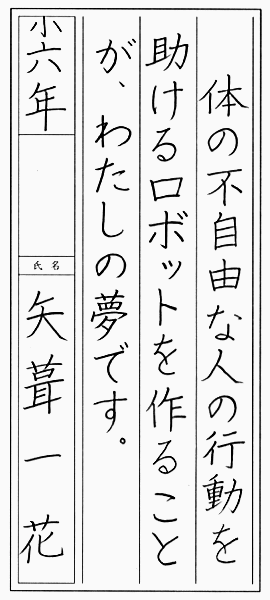 体の不自由な人の行動を
助けるロボットを作ること
が、わたしの夢です。
小六年
氏名
矢葺一花